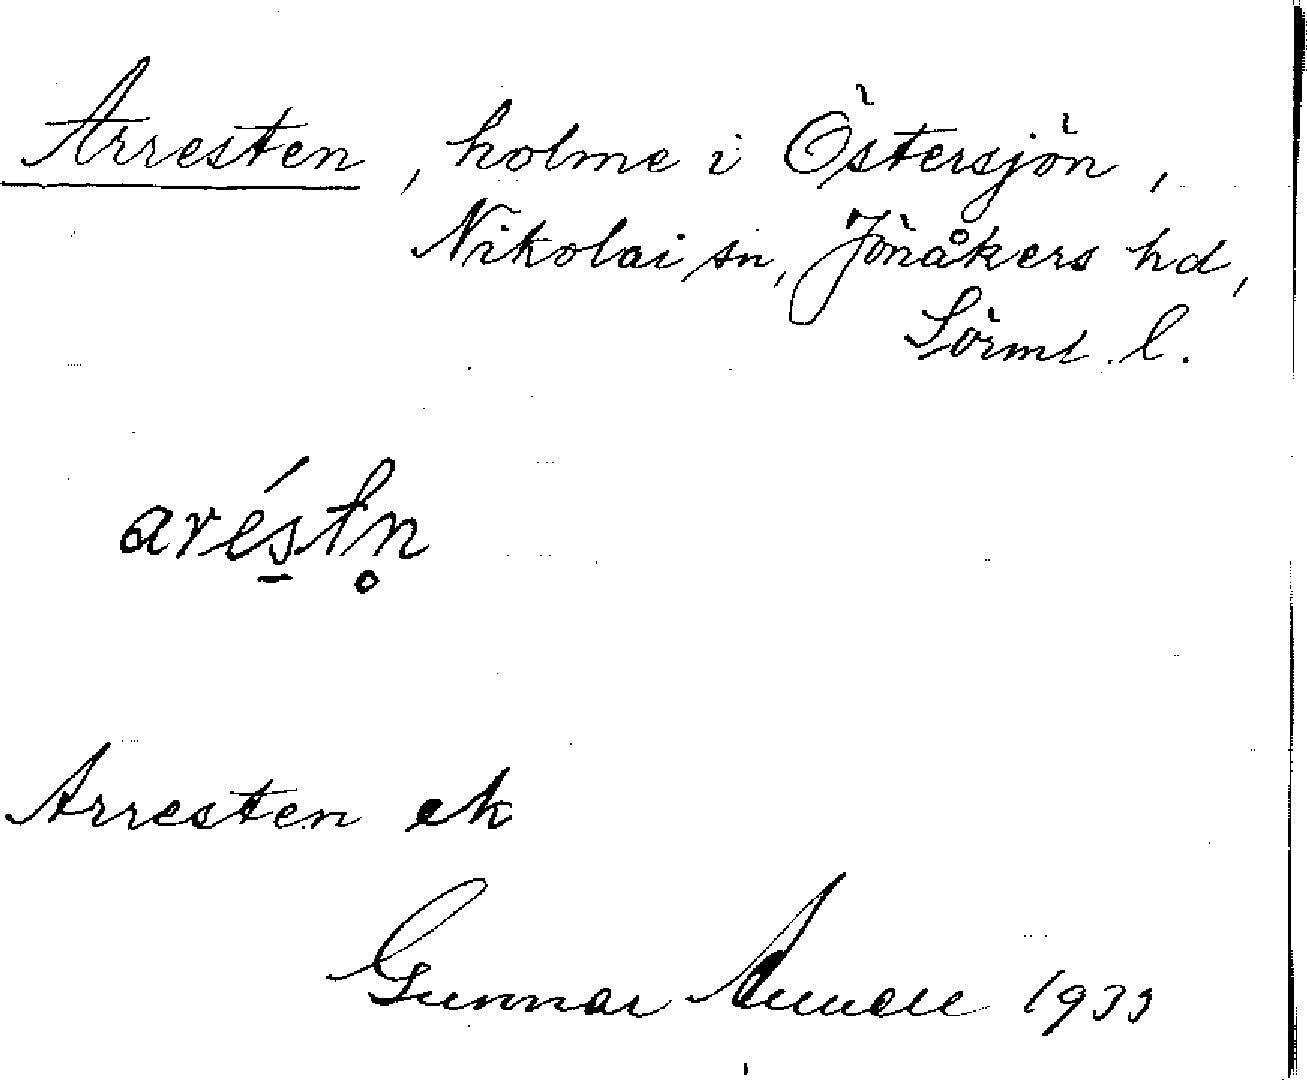 Arresten, holme i Östersjön,
Nikolai sn, Jönåkers hd,
Sörml. l.
arés̠tn̥
Arresten ek
Gunnar 1933